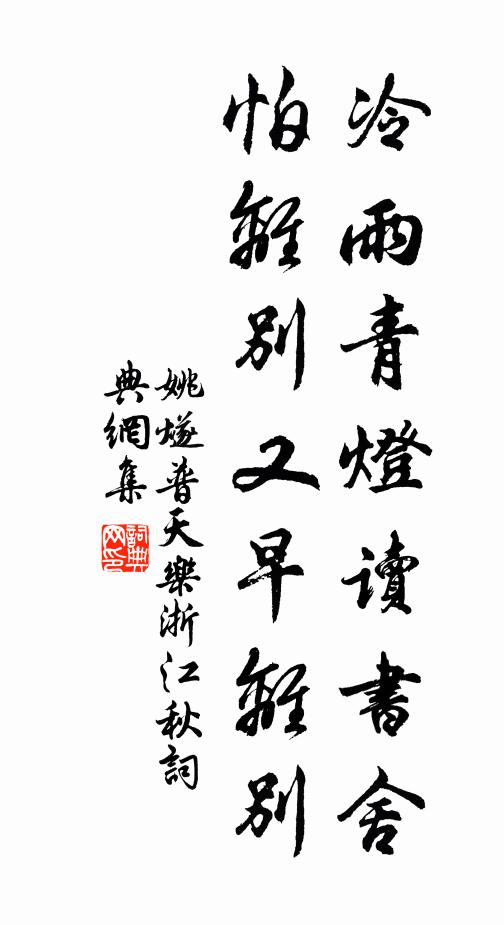 冷雨青燈讀書舍
怕離別又早離別
姚燧普天樂浙江秋詞
典網集
詞典網印